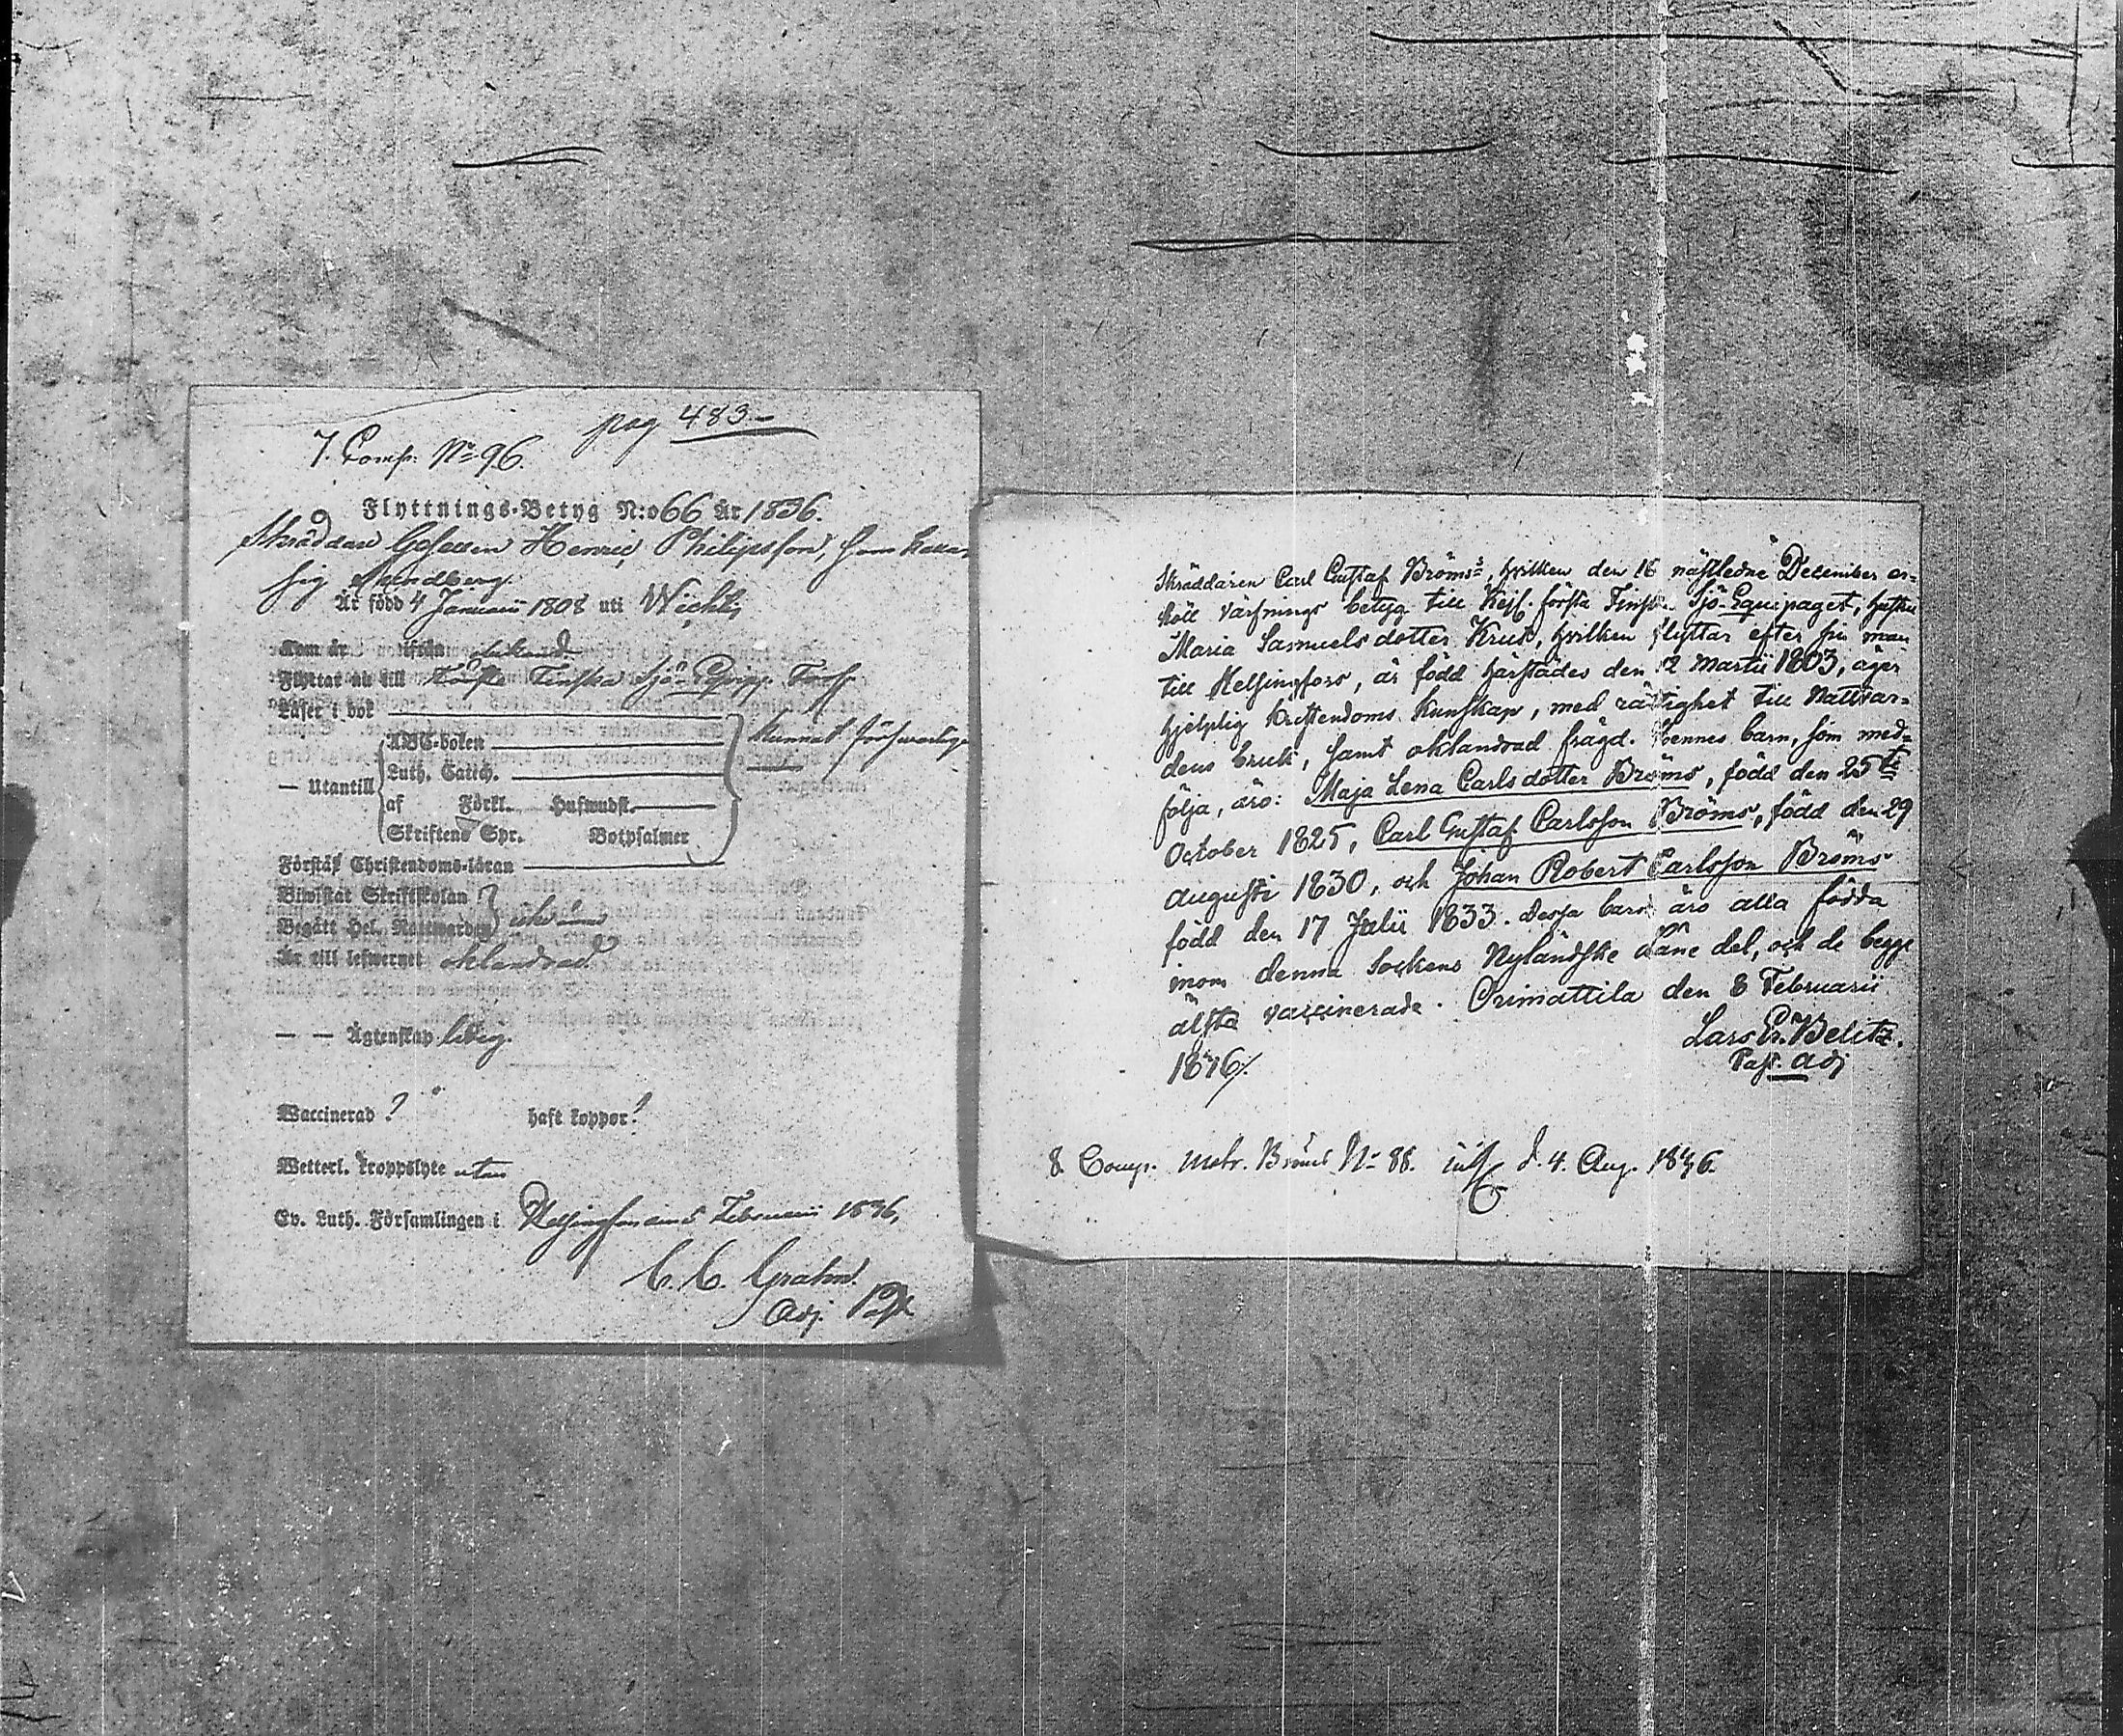 pag 483.-
7. Comp. No 96.
Flyttnings-Betyg N:o 66 År 1836.
Skräddare Gesällen Henric Philipsson, som kallar
sig Strandberg.
Är född 4 Januarii 1808 uti Wichtis
Kom år ifrån
Flyttar nu till Första Finska Sjö-Equip.
Läser i bok
— Utantill
ABC-boken
Luth. Catech.
af Förkl. Hufwudst.
Skriftens Spr. Botpsalmer
Kunnat försvarlig
Förstår Christendoms-läran
Biwistat Skriftskolan
Begått Hel. Nattwarden
Är till lefwernet oklandrad
— — Ägtenskap ledig.
Waccinerad ? haft koppor ?
Wetterl. kroppslyte utan
Ev. Luth. Församlingen i Helsingfors Februarii 1836,
C. C. Grahn.
Adj. Past.
Skräddaren Carl Gustaf Bröms's, hvilken den 16 nästledne December er-
höll värfnings betyg till Kejs. första Finska Sjö-Equipaget, hustru
Maria Samuels dotter Kruk, hvilken flyttar efter sin man
till Helsingfors, är född härstädes den 12 Martii 1803, äger
hjelplig Kristendoms Kunskap, med rättighet till Nattvar-
dens bruk, samt oklandrad frägd. Hennes barn, som med-
följa, äro: Maja Lena Carlsdotter Bröms, född den 25te
October 1825, Carl Gustaf Carlsson Bröms, född den 29
Augusti 1830, och Johan Robert Carlsson Bröms
född den 17 Julii 1833. Dessa barn äro alla födda
inom denna Sockens Nyländske Läne del, och de begge
älsta vaccinerade. Orimattila den 8 Februarii
1836/.
Lars Er. Belitz.
Past. Adj
8 Comp. Matr. Bröms No 88. d. 4. Aug. 1836.